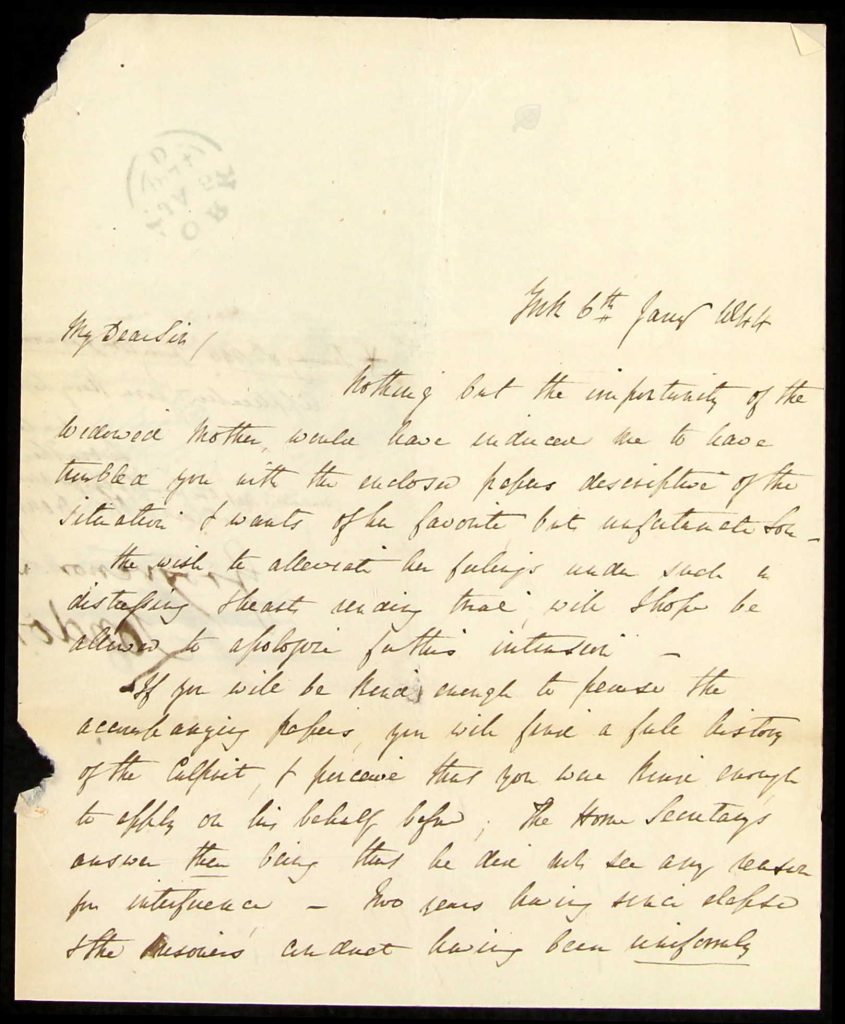 York 6th Jany 1844
My Dear Sir,
Nothing but the importunity of the
widowed Mother, would have induced me to have
troubled you with the enclosed papers descriptive of the
situation & wants of her favorite but unfortunate Son –
the wish to alleviate her feelings under such a
distressing & heart rending trial, will I hope be
allowed to apologize for this intrusion –
If you will be kind enough to peruse the
accompanying papers, you will find a full history
of the Culprit, & perceive that you were kind enough
to apply on his behalf before; The Home Secretarys
answer then being that he did not see any reason
for interference – Two years having since elapsed
& the Prisoners' conduct having been uniformly